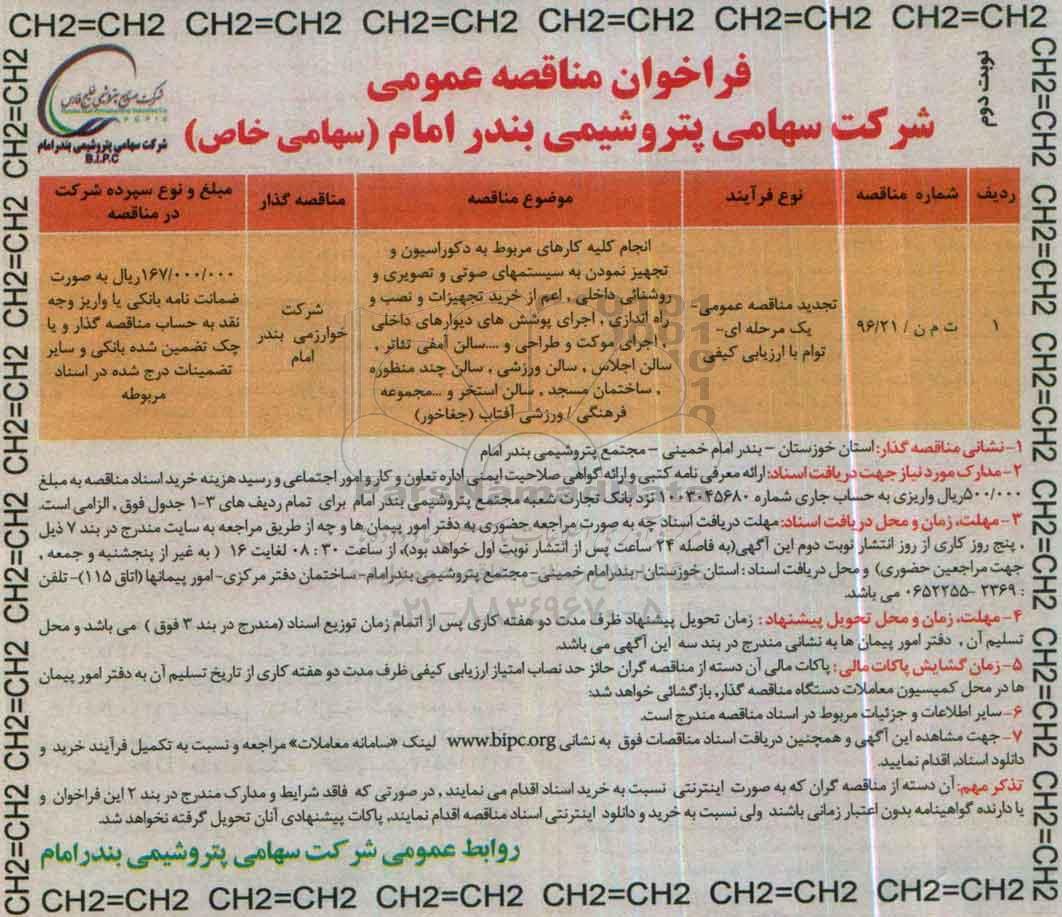 CH2=CH2 CH2=CH2 CH2=CH2 CH2=CH2 CH2=CH2 CH2=CH2
نوبت دوم
فراخوان مناقصه عمومی
شرکت سهامی پتروشیمی بندر امام (سهامی خاص)
شرکت صنایع پتروشیمی خلیج فارس
P G P I C
شرکت سهامی پتروشیمی بندر امام
B.I.P.C
ردیف
شماره مناقصه
نوع فرآیند
موضوع مناقصه
مناقصه گذار
مبلغ و نوع سپرده شرکت
در مناقصه
۱
ت م ن / ۹۶/۲۱
تجدید مناقصه عمومی-
یک مرحله ای-
توام با ارزیابی کیفی
انجام کلیه کارهای مربوط به دکوراسیون و
تجهیز نمودن به سیستمهای صوتی و تصویری و
روشنائی داخلی , اعم از خرید تجهیزات و نصب و
راه اندازی , اجرای پوشش های دیوارهای داخلی
, اجرای موکت و طراحی و ....سالن آمفی تئاتر ,
سالن اجلاس , سالن ورزشی , سالن چند منظوره
, ساختمان مسجد , سالن استخر و ...مجموعه
فرهنگی / ورزشی آفتاب (جغاخور)
شرکت
خوارزمی بندر
امام
۱۶۷/۰۰۰/۰۰۰ریال به صورت
ضمانت نامه بانکی یا واریز وجه
نقد به حساب مناقصه گذار و یا
چک تضمین شده بانکی و سایر
تضمینات درج شده در اسناد
مربوطه
۱-نشانی مناقصه گذار: استان خوزستان - بندر امام خمینی - مجتمع پتروشیمی بندر امام
۲-مدارک مورد نیاز جهت دریافت اسناد: ارائه معرفی نامه کتبی و ارائه گواهی صلاحیت ایمنی اداره تعاون و کار و امور اجتماعی و رسید هزینه خرید اسناد مناقصه به مبلغ
۵۰۰/۰۰۰ریال واریزی به حساب جاری شماره ۱۰۰۳۰۴۵۶۸۰ نزد بانک تجارت شعبه مجتمع پتروشیمی بندر امام برای تمام ردیف های ۳-۱ جدول فوق , الزامی است.
۳-مهلت، زمان و محل دریافت اسناد: مهلت دریافت اسناد چه به صورت مراجعه حضوری به دفتر امور پیمان ها و چه از طریق مراجعه به سایت مندرج در بند ۷ ذیل
, پنج روز کاری از روز انتشار نوبت دوم این آگهی(به فاصله ۲۴ ساعت پس از انتشار نوبت اول خواهد بود)، از ساعت ۳۰ : ۰۸ لغایت ۱۶ ( به غیر از پنجشنبه و جمعه ,
جهت مراجعین حضوری) و محل دریافت اسناد : استان خوزستان-بندرامام خمینی- مجتمع پتروشیمی بندرامام-ساختمان دفتر مرکزی- امور پیمانها (اتاق ۱۱۵)- تلفن
: ۲۳۶۹ -۰۶۵۲۲۵۵ می باشد.
۴-مهلت، زمان و محل تحویل پیشنهاد : زمان تحویل پیشنهاد ظرف مدت دو هفته کاری پس از اتمام زمان توزیع اسناد (مندرج در بند ۳ فوق ) می باشد و محل
تسلیم آن , دفتر امور پیمان ها به نشانی مندرج در بند سه این آگهی می باشد.
۵-زمان گشایش پاکات مالی: پاکات مالی آن دسته از مناقصه گران حائز حد نصاب امتیاز ارزیابی کیفی ظرف مدت دو هفته کاری از تاریخ تسلیم آن به دفتر امور پیمان
ها در محل کمیسیون معاملات دستگاه مناقصه گذار، بازگشائی خواهد شد:
۶- سایر اطلاعات و جزئیات مربوط در اسناد مناقصه مندرج است.
۷- جهت مشاهده این آگهی و همچنین دریافت اسناد مناقصات فوق به نشانی www.bipc.org لینک «سامانه معاملات» مراجعه و نسبت به تکمیل فرآیند خرید و
دانلود اسناد، اقدام نمایید.
تذکر مهم: آن دسته از مناقصه گران که به صورت اینترنتی نسبت به خرید اسناد اقدام می نمایند , در صورتی که فاقد شرایط و مدارک مندرج در بند ۲ این فراخوان و
یا دارنده گواهینامه بدون اعتبار زمانی باشند ولی نسبت به خرید و دانلود اینترنتی اسناد مناقصه اقدام نمایند، پاکات پیشنهادی آنان تحویل گرفته نخواهد شد.
روابط عمومی شرکت سهامی پتروشیمی بندرامام
۰۲۱-۸۸۳۴۹۶۷۰-۵
CH2=CH2 CH2=CH2 CH2=CH2 CH2=CH2 CH2=CH2 CH2=CH2
CH2=CH2 CH2=CH2 CH2=CH2 CH2=CH2 CH2=CH2 CH2=CH2
CH2=CH2 CH2=CH2 CH2=CH2 CH2=CH2 CH2=CH2 CH2=CH2